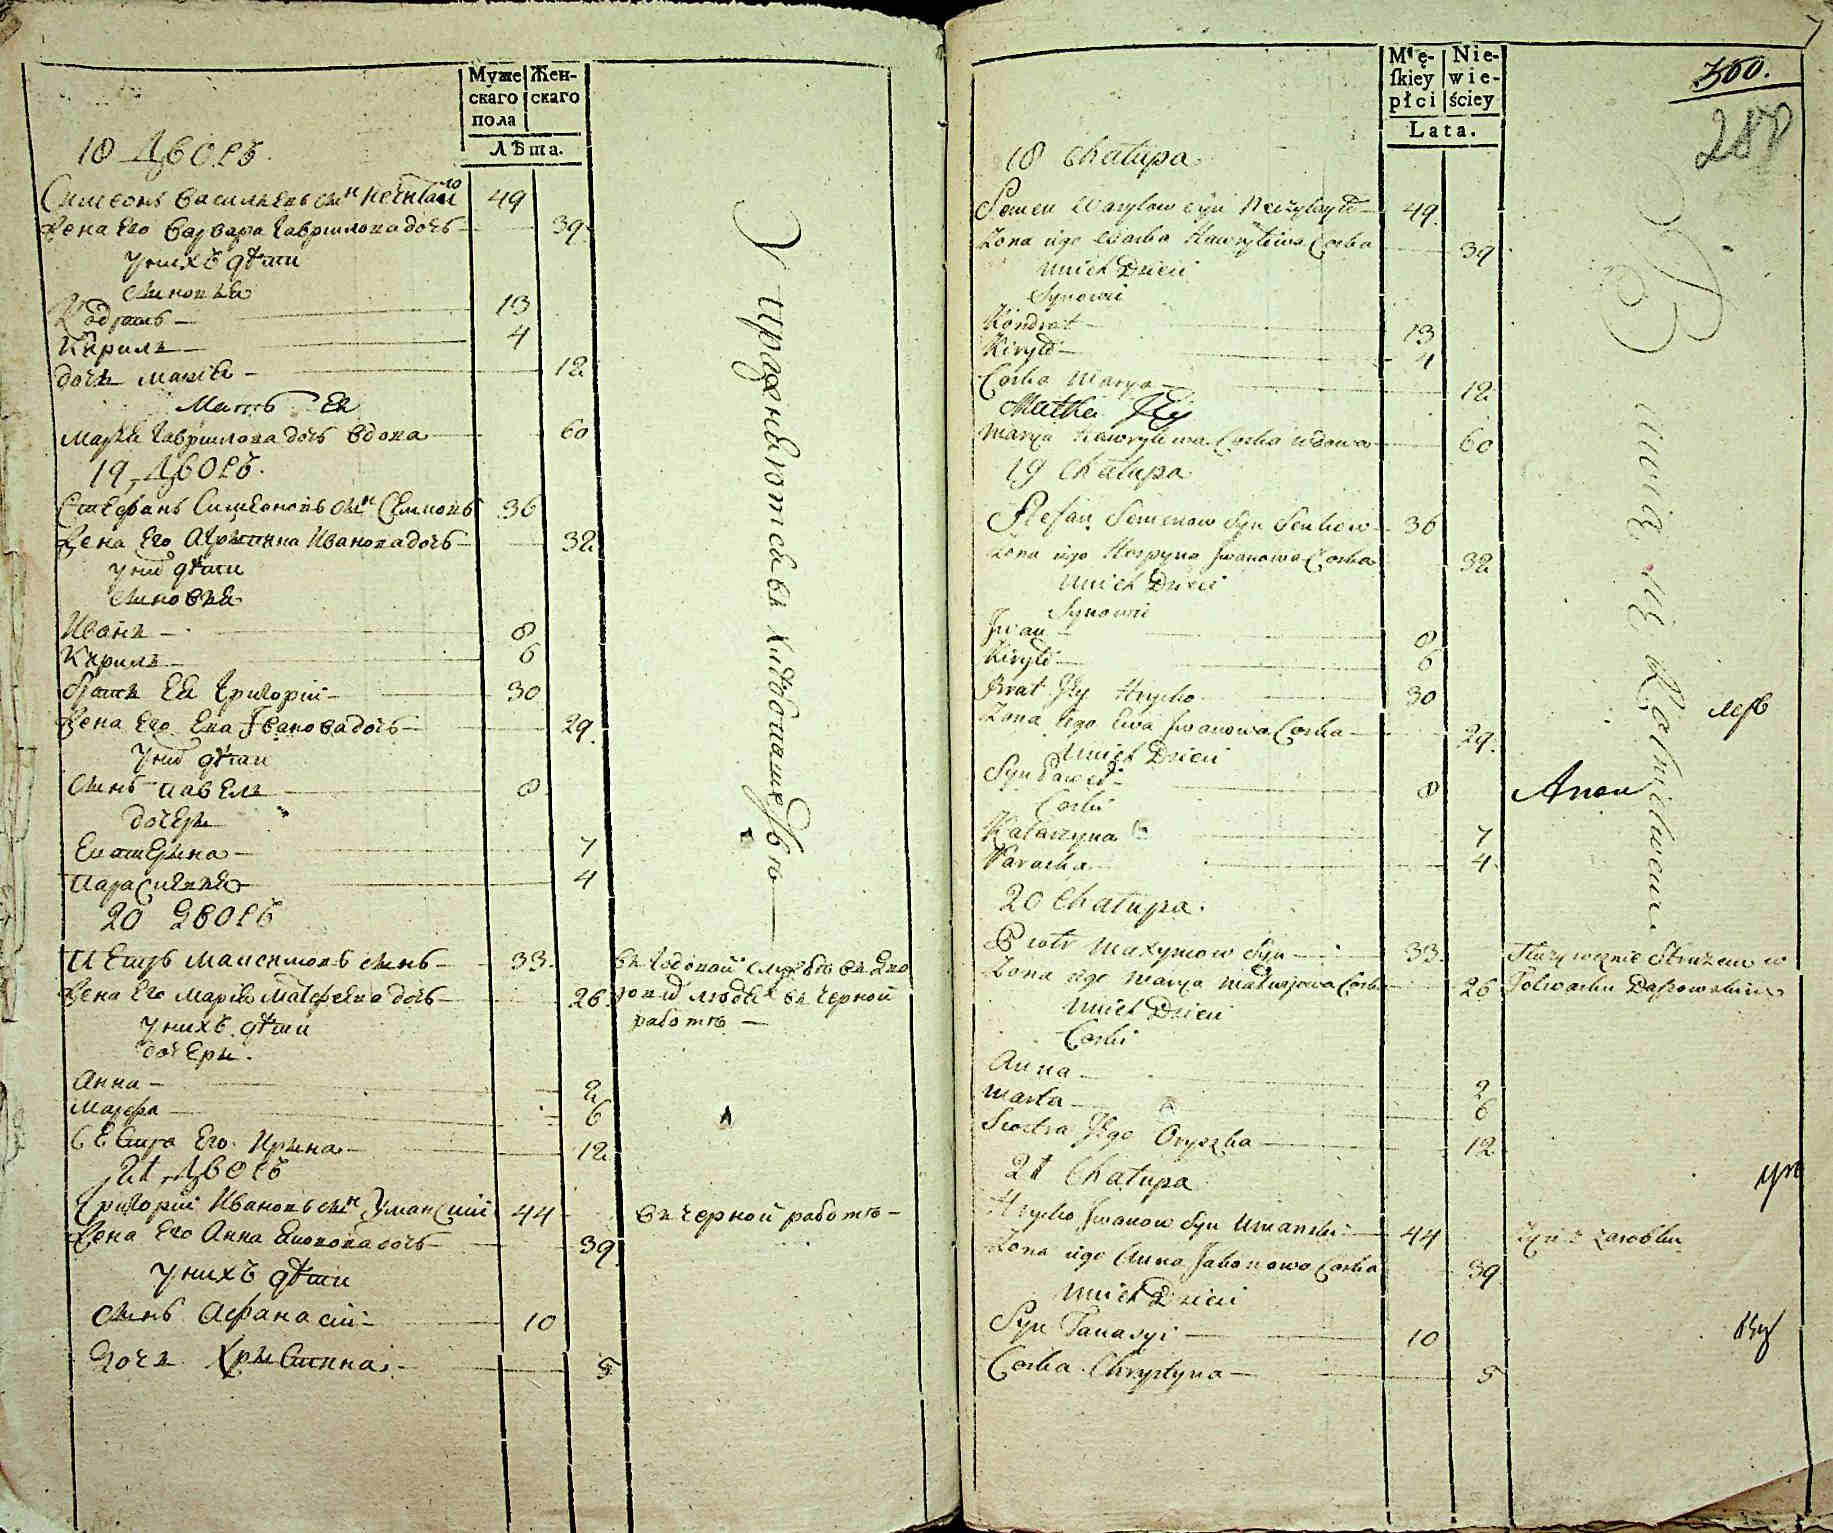 Муже
скаго
пола
Жен-
скаго
Лѣта.
18 Дворъ
Симеонъ Васильевъ сынъ Нечитайло 49
Жена его Варвара Гаврилова дочь 39
У нихъ дѣти
сыновья
Кодратъ 13
Кирилъ 4
дочь Марья 12
Мать Ея
Марья Гаврилова дочь вдова 60
19 Дворъ
Стефанъ Симеоновъ сынъ 36
Жена его Иванова дочь 32
у них дѣти
сыновья
Иванъ 8
Кирилъ 6
братъ Ея Григорій 30
Жена Его Ева Іванова дочь 29
у них дѣти
сынъ Павелъ 8
дочери
Екатерина 7
Параскевия 4
20 Дворъ
Петръ Максимовъ сынъ 33
Жена Его Марья Матфеева дочь 26
У нихъ дѣти
дочери
Анна 2
Марфа 6
Сестра Его Ирина 12
21 Дворъ
Григорій Ивановъ сынъ Уманскій 44
Жена Его Анна дочь 39
У нихъ дѣти
сынъ Афанасій 10
дочь Христина 5
Упражняются въ хлѣбопашествѣ
въ годовой службѣ въ
людей въ черной
работѣ
въ черной работѣ
Męſkiey
płci
Niewieściey
Lata.
360.
288
18 Chałupa
Semen Wasylow Syn Neczytayło 49
Zona iego Warka Hawryłowa Corka 39
U nich Dzieci
Synowie
Kondrat 13
Kiryło 4
Corka Marya 12
Matka Jey
Marya Hawryłowa Corka wdowa 60
19 Chałupa
Stefan Semenow Syn Senkow 36
Zona iego Horpyna Jwanowa Corka 32
U nich Dzieci
Synowie
Jwan 8
Kiryło 6
Brat Jey Hrycko 30
Zona iego Ewa Jwanowa Corka 29
U nich Dzieci
Syn Paweł 8
Corki
Katarzyna 7
Paraska 4
20 Chałupa
Piotr Maxymow Syn 33
Zona iego Marya Matwiejowa Corka 26
U nich Dzieci
Corki
Anna 2
Marta 6
Siostra Jego Oryszka 12
21 Chałupa
Hrycko Jwanow Syn Umanski 44
Zona iego Anna Jakowowa Corka 39
U nich Dzieci
Syn Tanasyi 10
Corka Chrystyna 5
Służy wiecznie Stróżem w
Folwarku
Żyie z zarobku